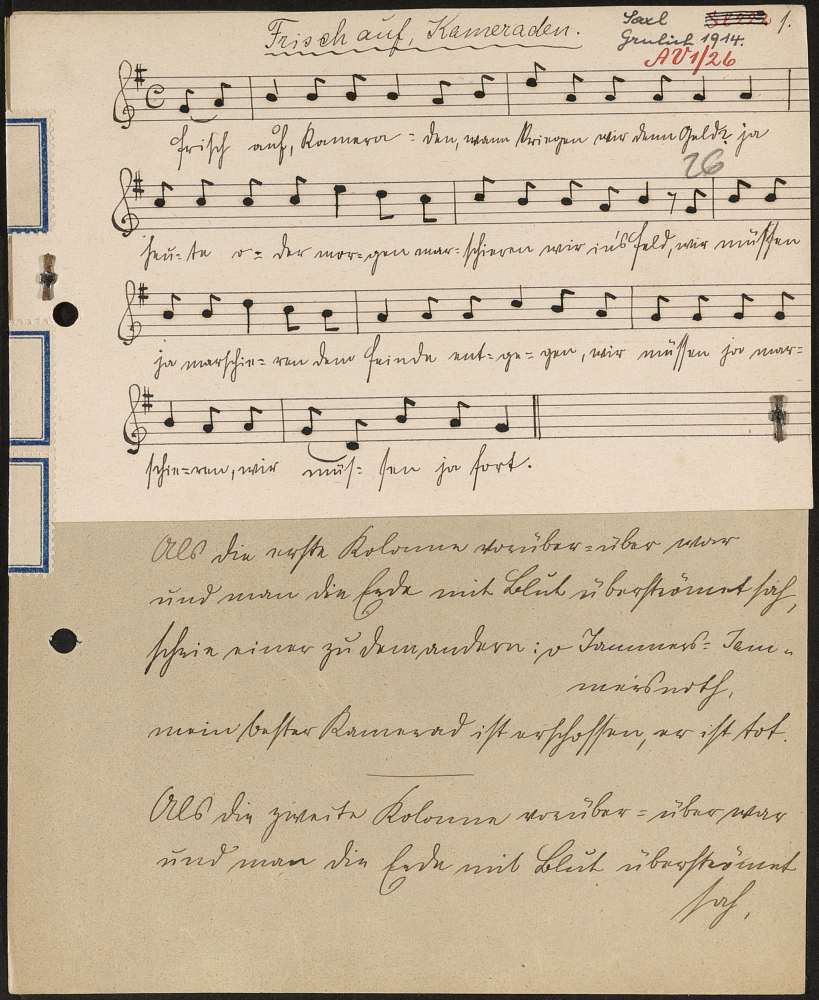 Frisch auf, Kameraden.
Saxl
1.
Grulich 1914.
AV1/26
frisch auf, Kamera = den, wann kriegen wir denn Geld? ja
26
heu = te o = der mor = gen mar = schieren wir in's Feld, wir müssen
ja marschie = ren dem Feinde ent = ge = gen, wir müssen ja mar =
schie = ren, wir müs = sen ja fort.
Als die erste Kolonne vorüber = über war
und man die Erde mit Blut überströmet sah,
schrie einer zu dem andern: o Jammers = Jam =
mersnoth,
mein bester Kamerad ist erschossen, er ist tot.
Als die zweite Kolonne vorüber = über war
und man die Erde mit Blut überströmet
sah,